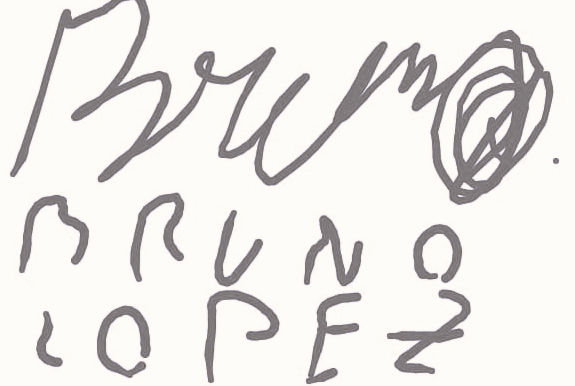 Bruno.
BRUNO
LOPEZ